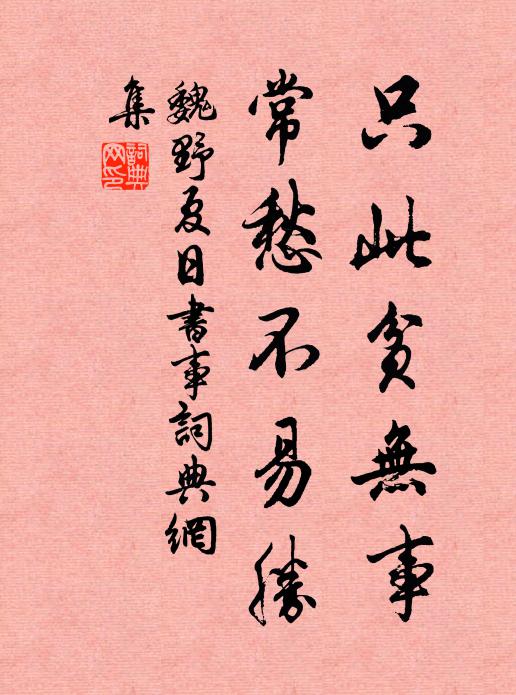 只此貧無事
常愁不易勝
魏野夏日書事詞典網
集
詞典
网印